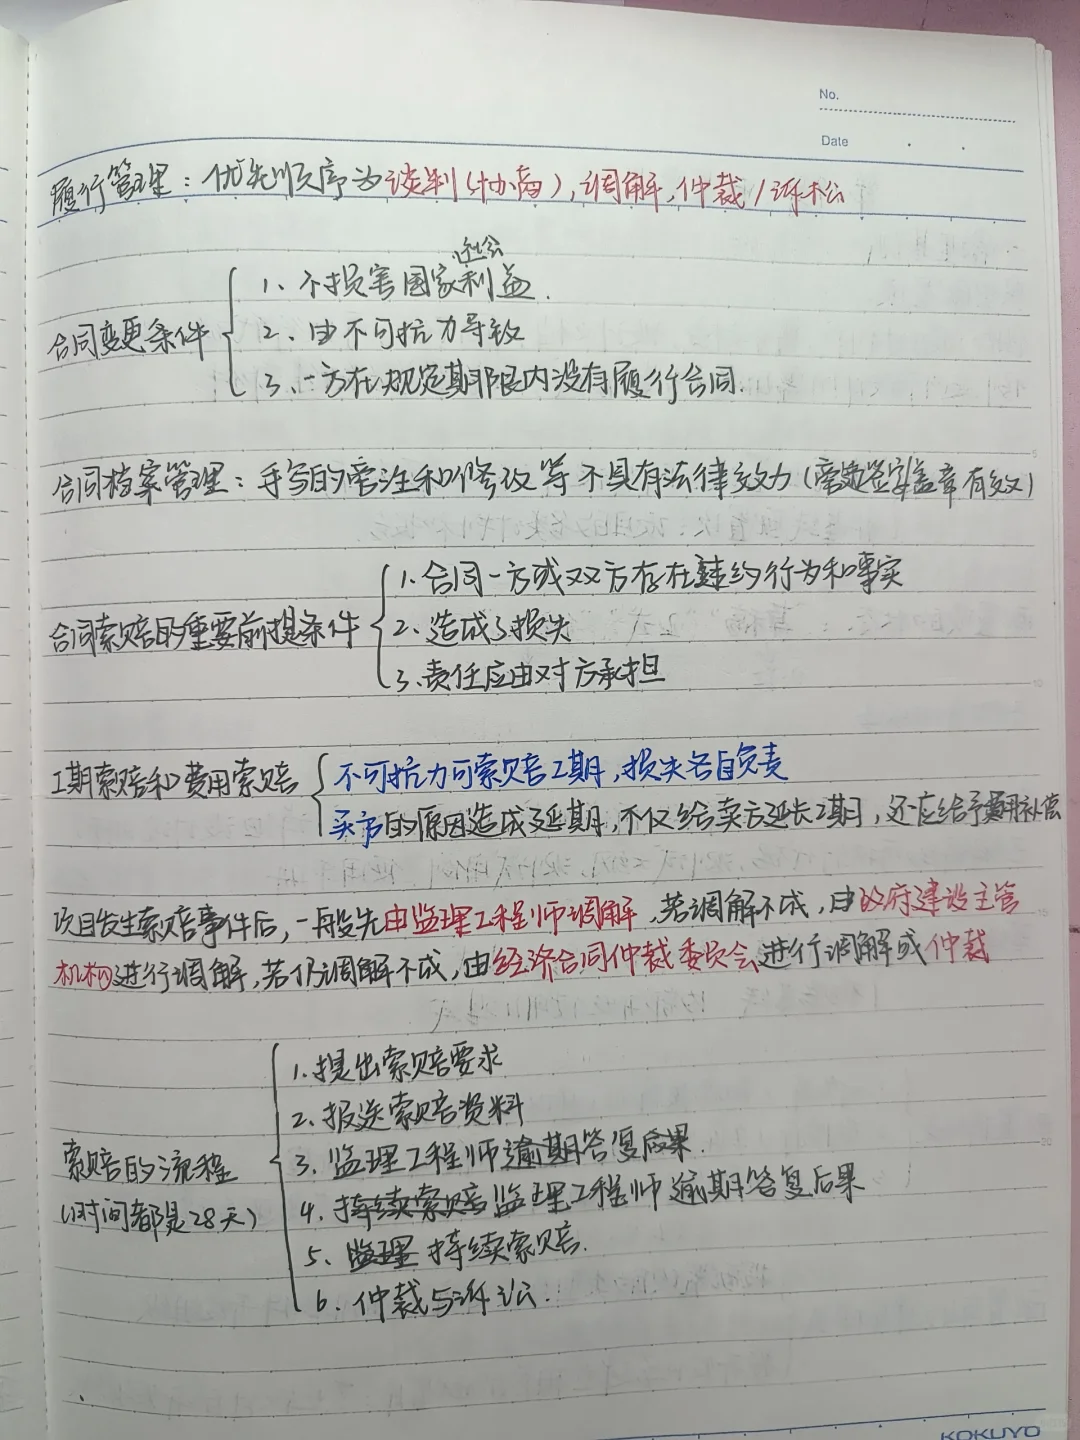 No.
Date
履行管理：优先顺序为谈判(协商)，调解，仲裁/诉讼
社会
1、不损害国家利益.
合同变更条件
2、由不可抗力导致
3、一方在规定期限内没有履行合同.
合同档案管理：手写的旁注和修改等不具有法律效力(旁边签字盖章有效)
1.合同一方或双方存在违约行为和事实
合同索赔的重要前提条件
2、造成了损失
3.责任应由对方承担
工期索赔和费用索赔
不可抗力可索赔工期，损失各自负责
买方的原因造成延期，不仅给卖方延长工期，还应给予费用补偿
项目发生索赔事件后，一般先由监理工程师调解，若调解不成，由政府建设主管
机构进行调解，若仍调解不成，由经济合同仲裁委员会进行调解或仲裁
1.提出索赔要求
2.报送索赔资料
索赔的流程
3.监理工程师答复.
(时间都是28天)
4.监理工程师逾期答复后果
5.持续索赔.
6.仲裁与诉讼.
KOKUYO